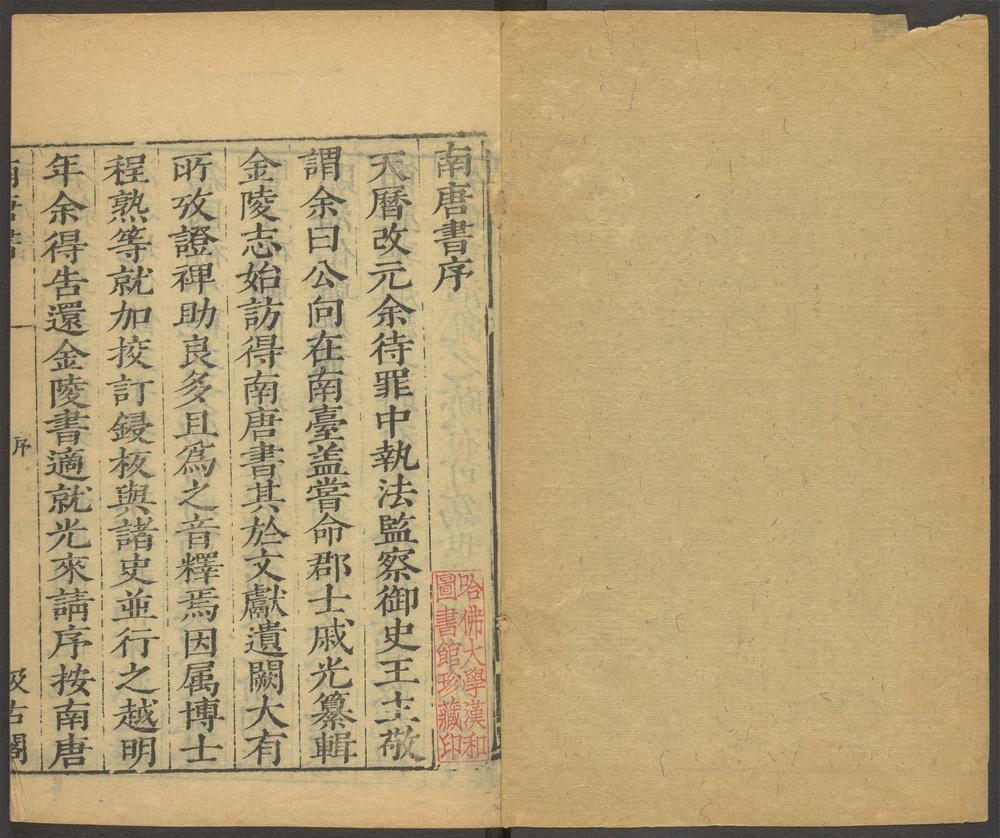 南唐書序
天曆改元余待罪中執法監察御史王主敬
謂余曰公向在南臺盖嘗命郡士戚光纂輯
金陵志始訪得南唐書其於文獻遺闕大有
所攷證裨助良多且爲之音釋焉因属博士
程熟等就加挍訂鋟板與諸史並行之越明
年余得告還金陵書適就光來請序按南唐
南唐書
一
序
汲古閣
哈佛大學漢和
圖書館珍藏印